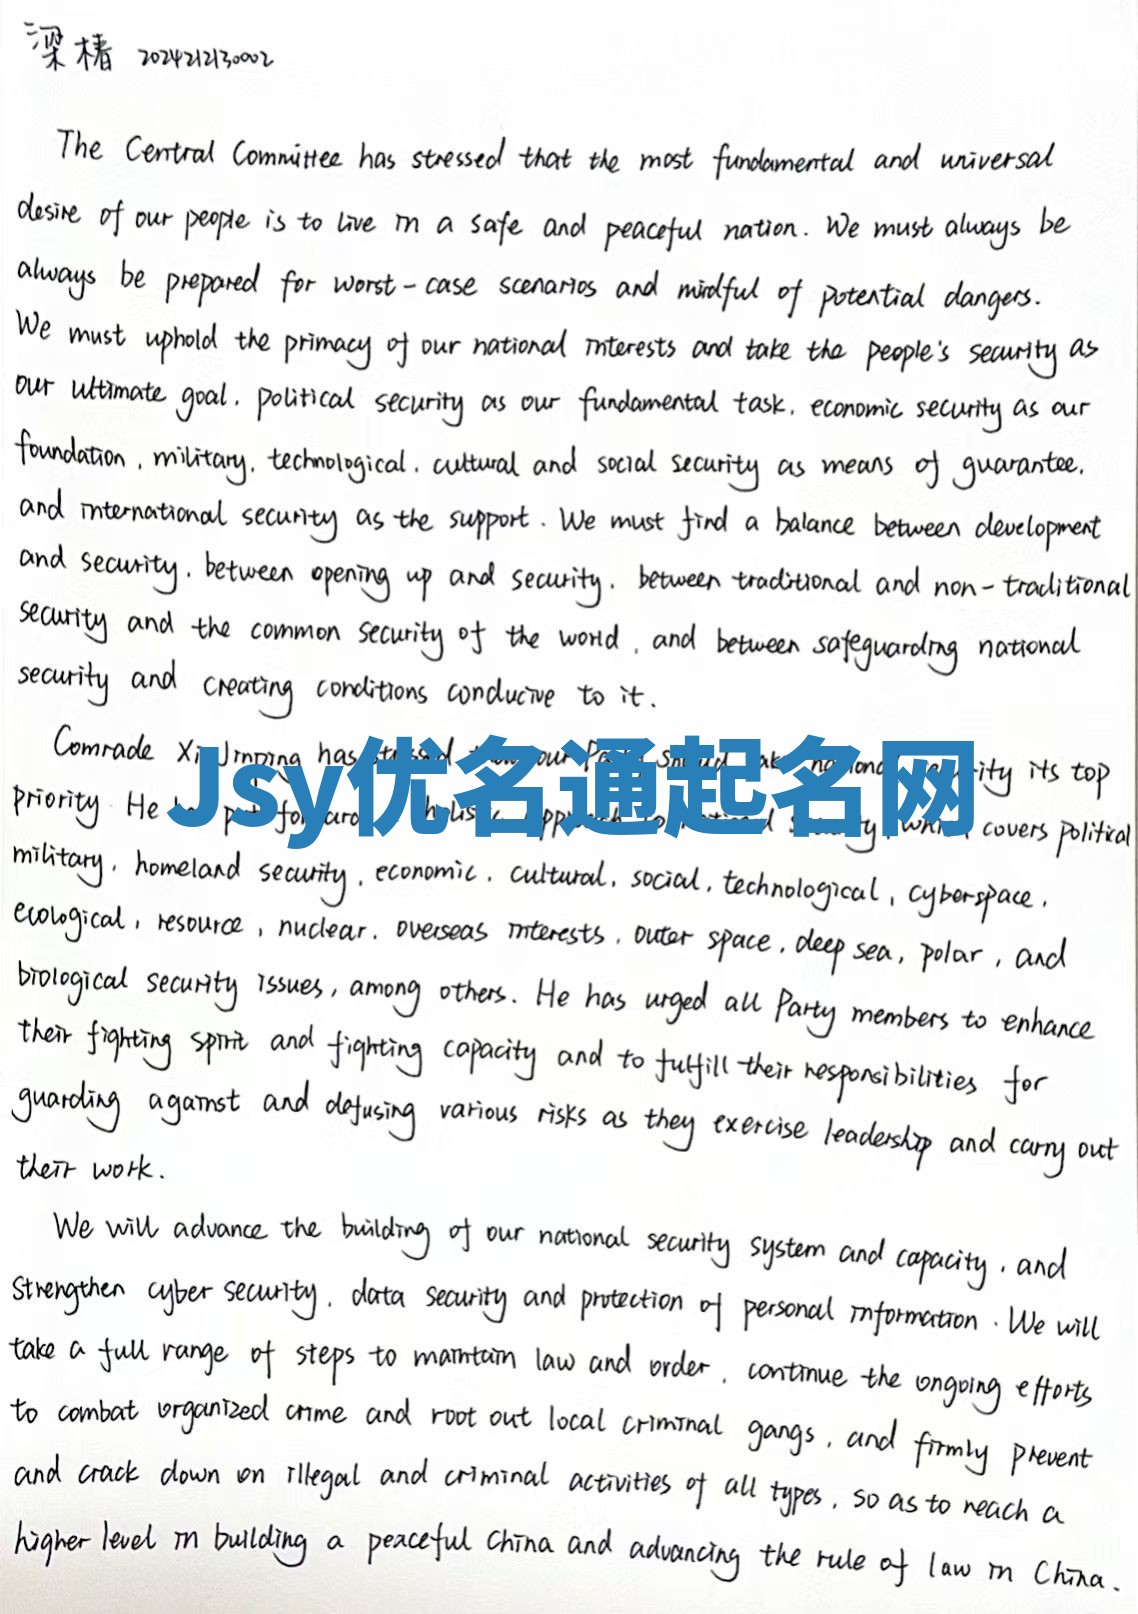 梁椿 2024212130002
The Central Committee has stressed that the most fundamental and universal
desire of our people is to live in a safe and peaceful nation. We must always be
always be prepared for worst-case scenarios and mindful of potential dangers.
We must uphold the primacy of our national interests and take the people's security as
our ultimate goal, political security as our fundamental task, economic security as our
foundation, military, technological, cultural and social security as means of guarantee,
and international security as the support. We must find a balance between development
and security, between opening up and security, between traditional and non-traditional
security and the common security of the world, and between safeguarding national
security and creating conditions conducive to it.
Comrade Xi Jinping has our its top
Jsy优名通起名网
priority He covers political
military, homeland security, economic, cultural, social, technological, cyberspace,
ecological, resource, nuclear, overseas interests, outer space, deep sea, polar, and
biological security issues, among others. He has urged all Party members to enhance
their fighting spirit and fighting capacity and to fulfill their responsibilities for
guarding against and defusing various risks as they exercise leadership and carry out
their work.
We will advance the building of our national security system and capacity, and
strengthen cyber security, data security and protection of personal information. We will
take a full range of steps to maintain law and order, continue the ongoing efforts
to combat organized crime and root out local criminal gangs, and firmly prevent
and crack down on illegal and criminal activities of all types, so as to reach a
higher level in building a peaceful China and advancing the rule of law in China.